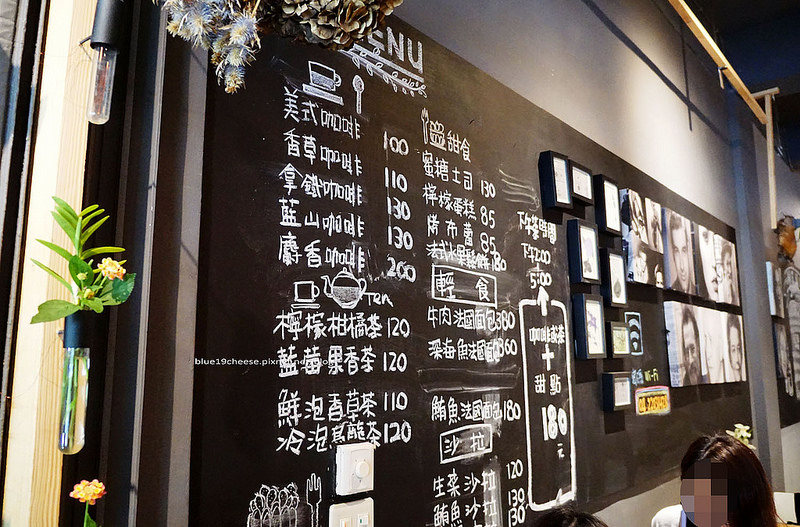 MENU
美式咖啡 100
香草咖啡 110
拿鐵咖啡 130
藍山咖啡 130
麝香咖啡 200
Tea
檸檬柑橘茶 120
藍莓果香茶 120
鮮泡香草茶 110
冷泡烏龍茶 120
甜食
蜜糖土司 130
檸檬蛋糕 85
烤布蕾 85
法式水果鬆餅 180
輕食
牛肉法國面包 380
深海魚法國面包 360
鮪魚法國面包 180
沙拉
生菜沙拉 120
鮪魚沙拉 130
130
下午茶時間
下午2:00
5:00
咖啡或茶
+
甜點
180
元
Wi-Fi
blue19cheese.pixnet.net/blog